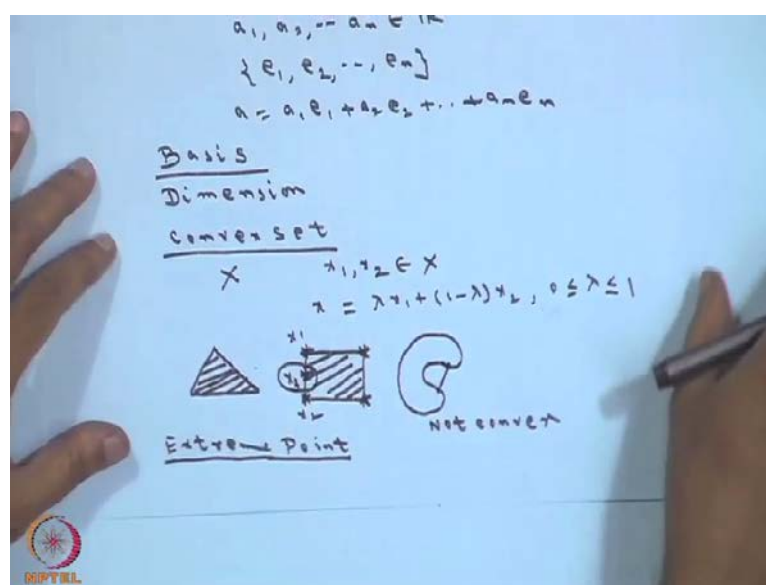 a₁, a₂, -- aₙ ∈ IR
{e₁, e₂, --, eₙ}
a = a₁e₁ + a₂e₂ + .. + aₙeₙ
Basis
Dimension
Convex set
X x₁, x₂ ∈ X
x = λx₁ + (1-λ)x₂, 0 ≤ λ ≤ 1
x₁
x₃
x₂
Not convex
Extreme Point
NPTEL